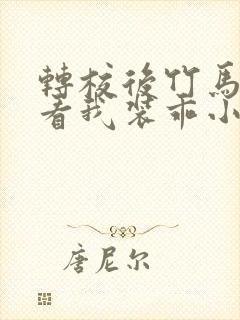 轉校後竹馬
看我裝乖小
唐尼尔